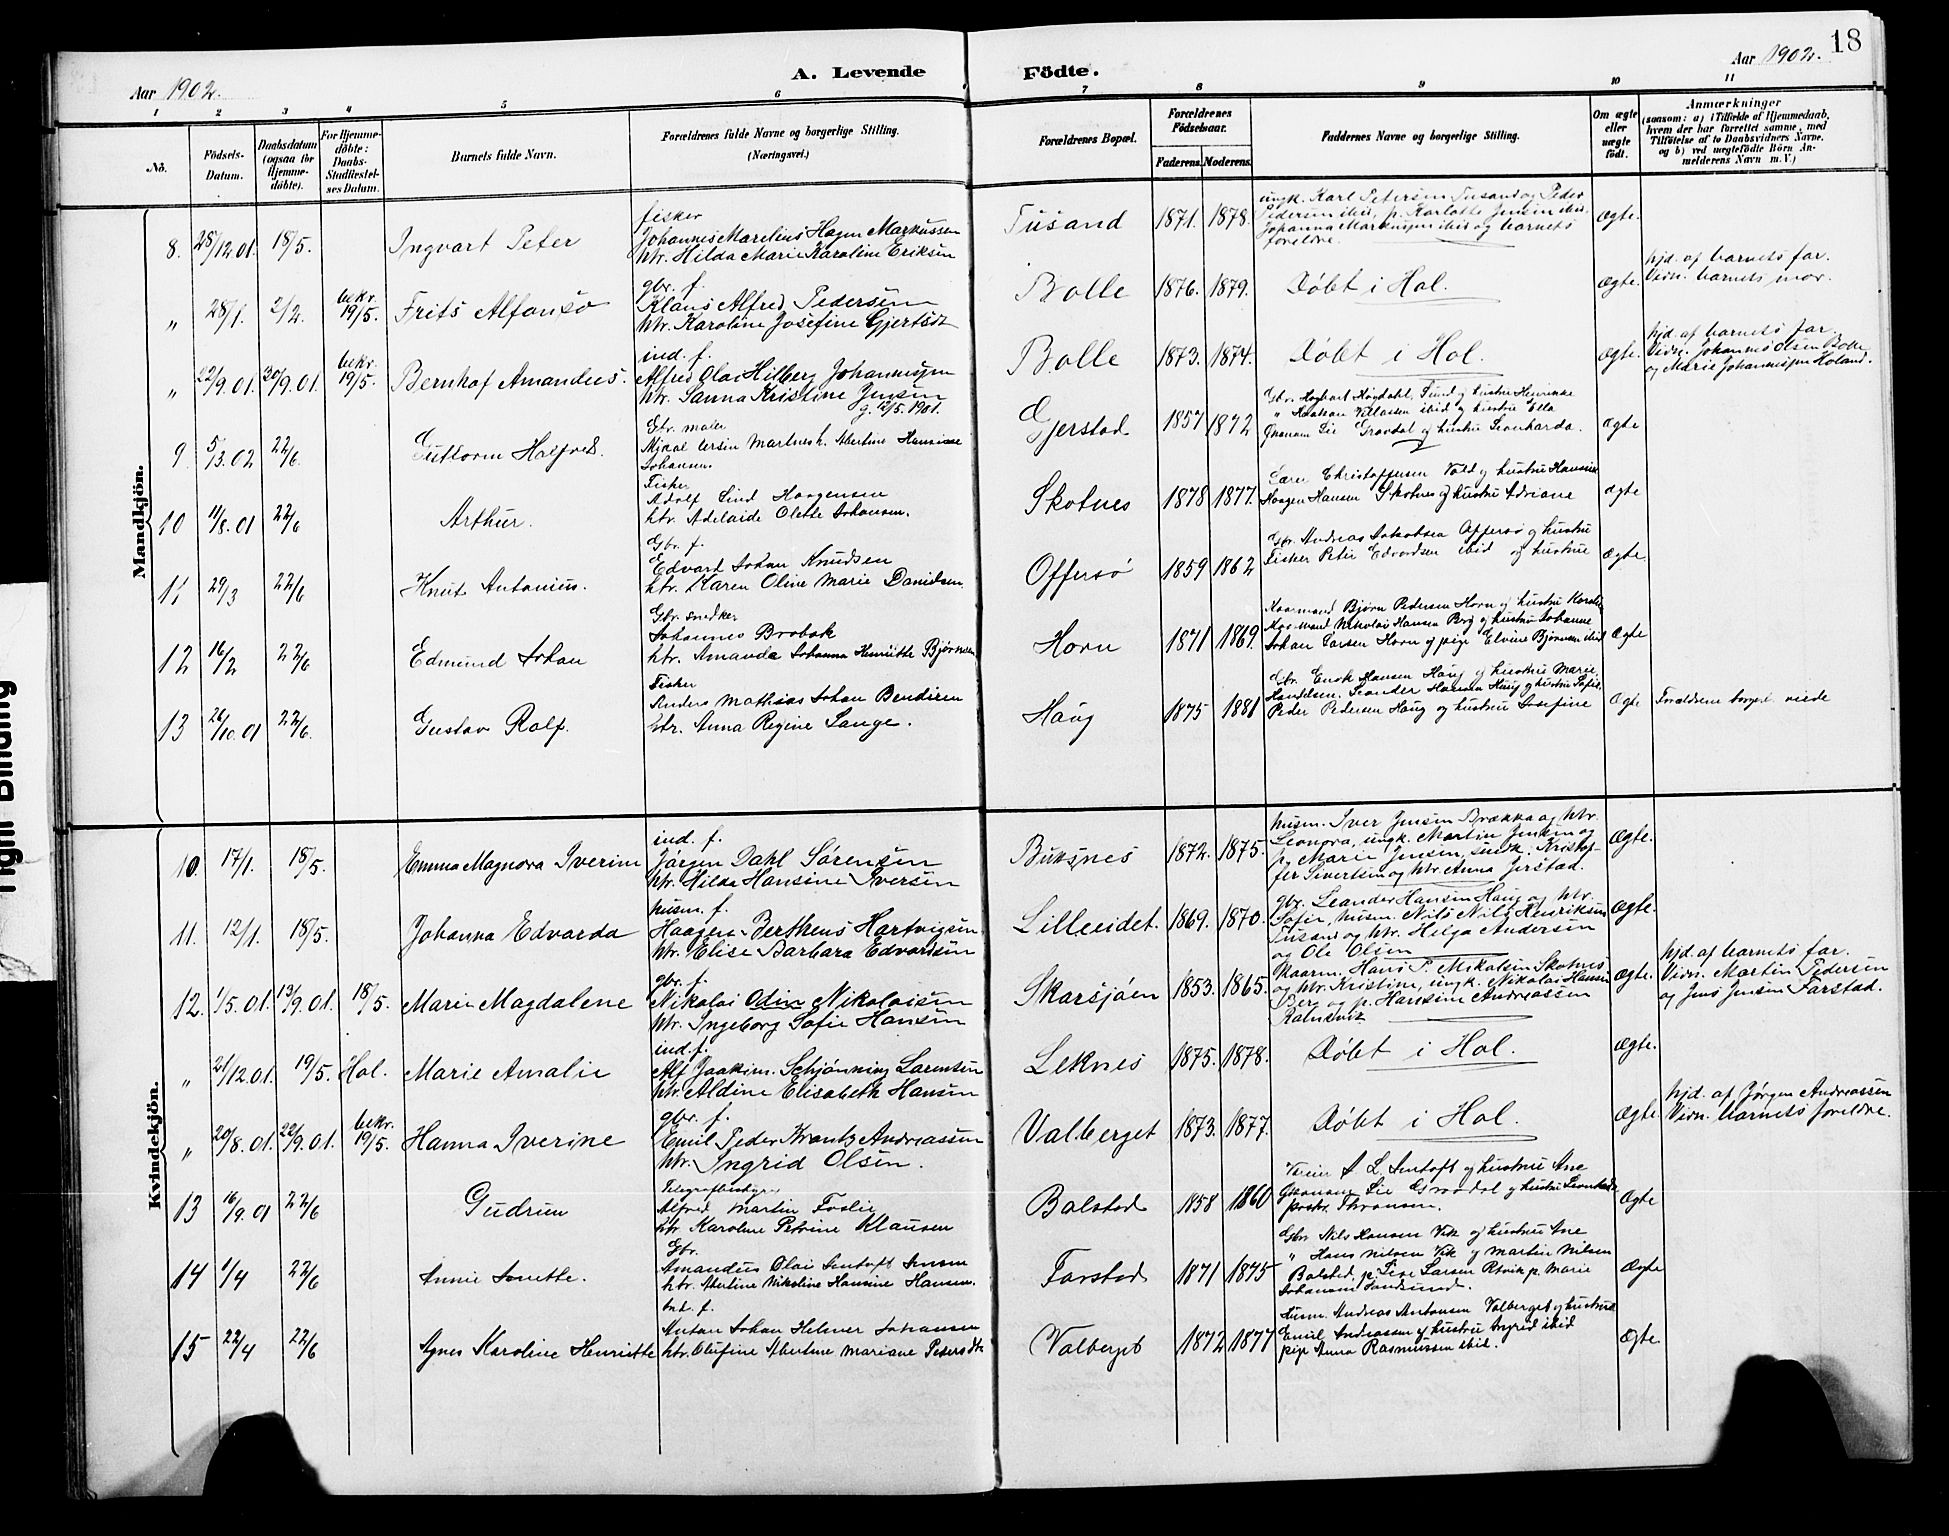 18
Aar 1902.
A. Levende
Födte.
Aar 1902.
1 2 3 4 5 6 7 8 9 10 11
No.
Födsels-
Datum.
Daabsdatum
(ogsaa for
Hjemme-
döbte).
For Hjemme-
döbte:
Daabs-
Stadfæstel-
ses Datum.
Barnets fulde Navn.
Forældrenes fulde Navne og borgerlige Stilling.
(Næringsvei.)
Forældrenes Bopæl.
Forældrenes
Födselsaar.
Faderens. Moderens.
Faddernes Navne og borgerlige Stilling.
Om ægte
eller
uægte
födt.
Anmærkninger
(saasom: a) i Tilfælde af Hjemmedaab,
hvem der har forrettet samme, med
Tilföielse af to Daabsvidners Navne,
og b) ved uægtefödte Börn An-
melderens Navn m. V.)
Mandkjön.
8. 28/12.01. 18/5. Ingvart Peter
fisker
Johannes Marelius Hagen Markussen
htr. Hilda Marie Karoline Eriksen
Tusand 1871. 1878.
ungk. Karl Petersen Tusand og Peder
Pedersen ibid, p. Karlotte Jensen ibid.
Johanna Markussen ibid og barnets
foreldre.
Ægte.
„ 28/1. 2/2. bekr. 19/5. Frits Alfonso
gbr. f.
Klaus Alfred Pedersen
htr. Karoline Josefine Gjertsdt
Bolle 1876. 1879. Døbt i Hol. Ægte.
hjd. af barnets far.
Vidn. barnets mor.
„ 22/9.01. 30/9.01. bekr. 19/5. Bernhof Amandus.
ind. f.
Alfred Olai Hilberg Johannessen
htr. Sanna Kristine Jensen
g. 12/5. 1901.
Bolle 1873. 1874. Døbt i Hol. Ægte.
hjd. af barnets far.
Vidn. Johannes Olsen Bolle
og Marie Johannessen Holand.
9. 5/3.02 22/6. Guttorm Halfred.
Gbr. maler
Mikal Martines h. Albertine Hansine
Johansen.
Gjerstad 1857 1872
Gbr. Hagbart Høgdahl, Fund og hustru Henrikke
ibid og hustru Ella
Lie Gravdal og hustru Leonharda.
Ægte
10 11/8.01 22/6 Arthur.
Fisker
Adolf Lind Haagensen
htr. Adelaide Olette Johansen.
Skotnes 1878 1877.
Christoffersen Vold og hustru Hansine
Haagen Hansen Skotnes og hustru Adriane
Ægte
11 29/3 22/6 Knut Antonius.
Gbr. f.
Edvart Johan Knudsen
htr. Karen Oline Marie Danielsen
Offersø 1859 1862
Gbr. Andreas Jakobsen Offersø og hustru
Fisker Peter Edvardsen ibid og hustru
Ægte
12 16/2 22/6 Edmund Johan
Gbr. snedker
Johannes Brobak
htr. Amanda Johanna Henriette Bjørnsen
Horn 1871 1869.
Kaarmand Bjørn Pedersen Horn og hustru Karoline
Kaarmand Nikolai Hansen Berg og hustru Johanne
Johan Larsen Horn og pige Elvine Bjørnsen ibid
Ægte
13 26/10.01 22/6. Gustav Rolf.
Fisker
Anders Mathias Johan Bendixen
htr. Anna Regine Lange.
Haug 1875 1881
Gbr. Enok Hansen Haug og hustru Marie
Handelsm. Leander Hansen Haug og hustru Sofie.
Peder Pedersen Haug og hustru Josefine
Ægte Forældrene borgerl. viede
Kvindekjön.
10. 17/1. 18/5. Emma Magnora Iverine
ind. f.
Jørgen Dahl Sørensen
htr. Hilda Hansine Iversen
Buksnes 1872. 1875.
husm. Iver Jensen Brækka og htr.
Leonora, ungk. Martin Jensen og
p. Marie Jensen, snedk. Kristof-
fer Sivertsen og htr. Anna Jerstad.
Ægte.
11. 12/1. 18/5. Johanna Edvarda
husm. f.
Haagen Bertheus Hartvigsen
htr. Elise Barbara Edvardsen
Lilleeidet. 1869. 1870.
gbr. Leander Hansen Haug og htr.
Sofie, husm. Nils Nils Henriksen
Tusand og htr. Helga Andersen
og Ole Olsen
Ægte.
12. 1/5.01. 13/9.01. 18/5. Marie Magdalene
gbr. f.
Nikolai Odin Nikolaisen
htr. Ingeborg Sofie Hansen
Skarsjøen 1853. 1865.
Kaarm. Hans P. Mikalsen Skotnes
og htr. Kristine, ungk. Nikolai Hansen
Berg og p. Hansine Andreassen
Ægte.
hjd. af barnets far.
Vidn. Martin Pedersen
og Jens Jensen Farstad.
„ 21/12.01. 19/5. Hol. Marie Amalie
ind. f.
Alf Joakim Schjønning Lorentsen
htr. Aldine Elisabeth Hansen
Leknes 1875. 1878. Døbt i Hol. Ægte.
„ 20/8.01. 22/9.01. bekr. 19/5. Hanna Iverine
gbr. f.
Emil Peder Krantz Andreassen
htr. Ingrid Olsen.
Valberget 1873. 1877. Døbt i Hol. Ægte.
hjd. af Jørgen Andreassen
Vidn. barnets foreldre.
13 16/9.01 22/6 Gudrun
Telegrafbestyrer
Alfred Martin Foslie
htr Karoline Petrine Klausen
Balstad 1858 1860
J. L. Jentoft og hustru Ane
Lie Gravdal og hustru Leonharda
Ægte
14 1/4 22/6 Annie Jonette.
Gbr.
Amandus Olai Jentoft Jensen
htr. Albertine Nikoline Hansine Hansen.
Farstad 1871 1875
Gbr Nils Hansen Vik og hustru Ane
„ Hans Nilsen Vik og Martin Nilsen
Balstad, p. Larsen p. Marie
Johansen Sandsund.
Ægte
15 22/4 22/6 Agnes Karoline Henriette
Ind. f.
Anton Johan Helmer Johansen
htr. Olufine Albertine Mariane Pedersdtr
Valberget 1872 1877
Husm. Andreas Antonsen Valberget og hustru
Emil Andreassen og hustru Ingrid ibid
pige Anna Rasmussen ibid.
Ægte
Tight Binding